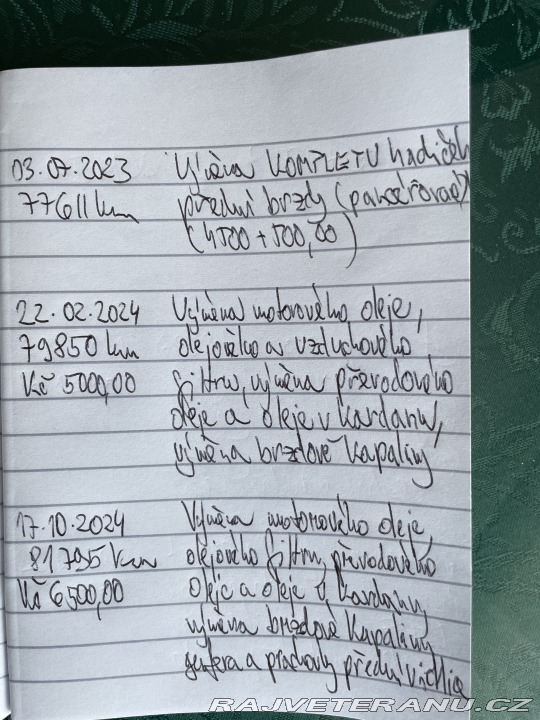 03.07.2023 Výměna KOMPLETU hadiček
77611 km přední brzdy (pancéřované)
(4500 + 500,00)
22.02.2024 Výměna motorového oleje,
79850 km olejového a vzduchového
Kč 5000,00 filtru, výměna převodového
oleje a oleje v kardanu,
výměna brzdové kapaliny
17.10.2024 Výměna motorového oleje,
81795 km olejového filtru, převodového
Kč 6500,00 oleje a oleje v kardanu
výměna brzdové kapaliny
gufera a prachovky přední vidlice
RAJVETERANU.CZ